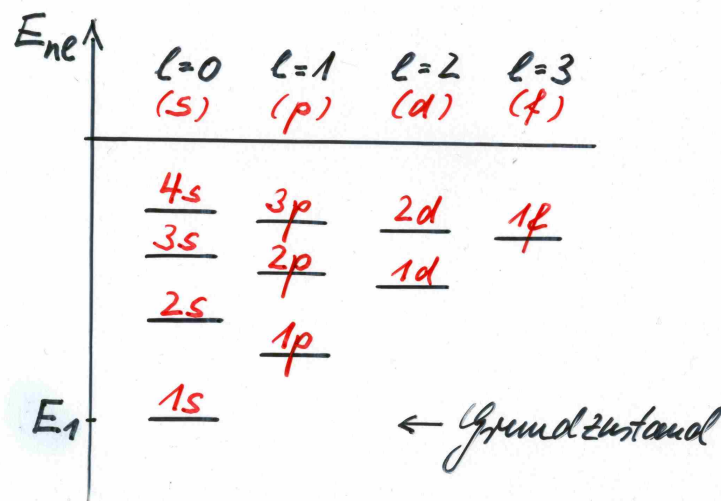 Enl
l=0 l=1 l=2 l=3
(s) (p) (d) (f)
4s 3p 2d 1f
3s 2p 1d
2s 1p
1s
E1 ← Grundzustand